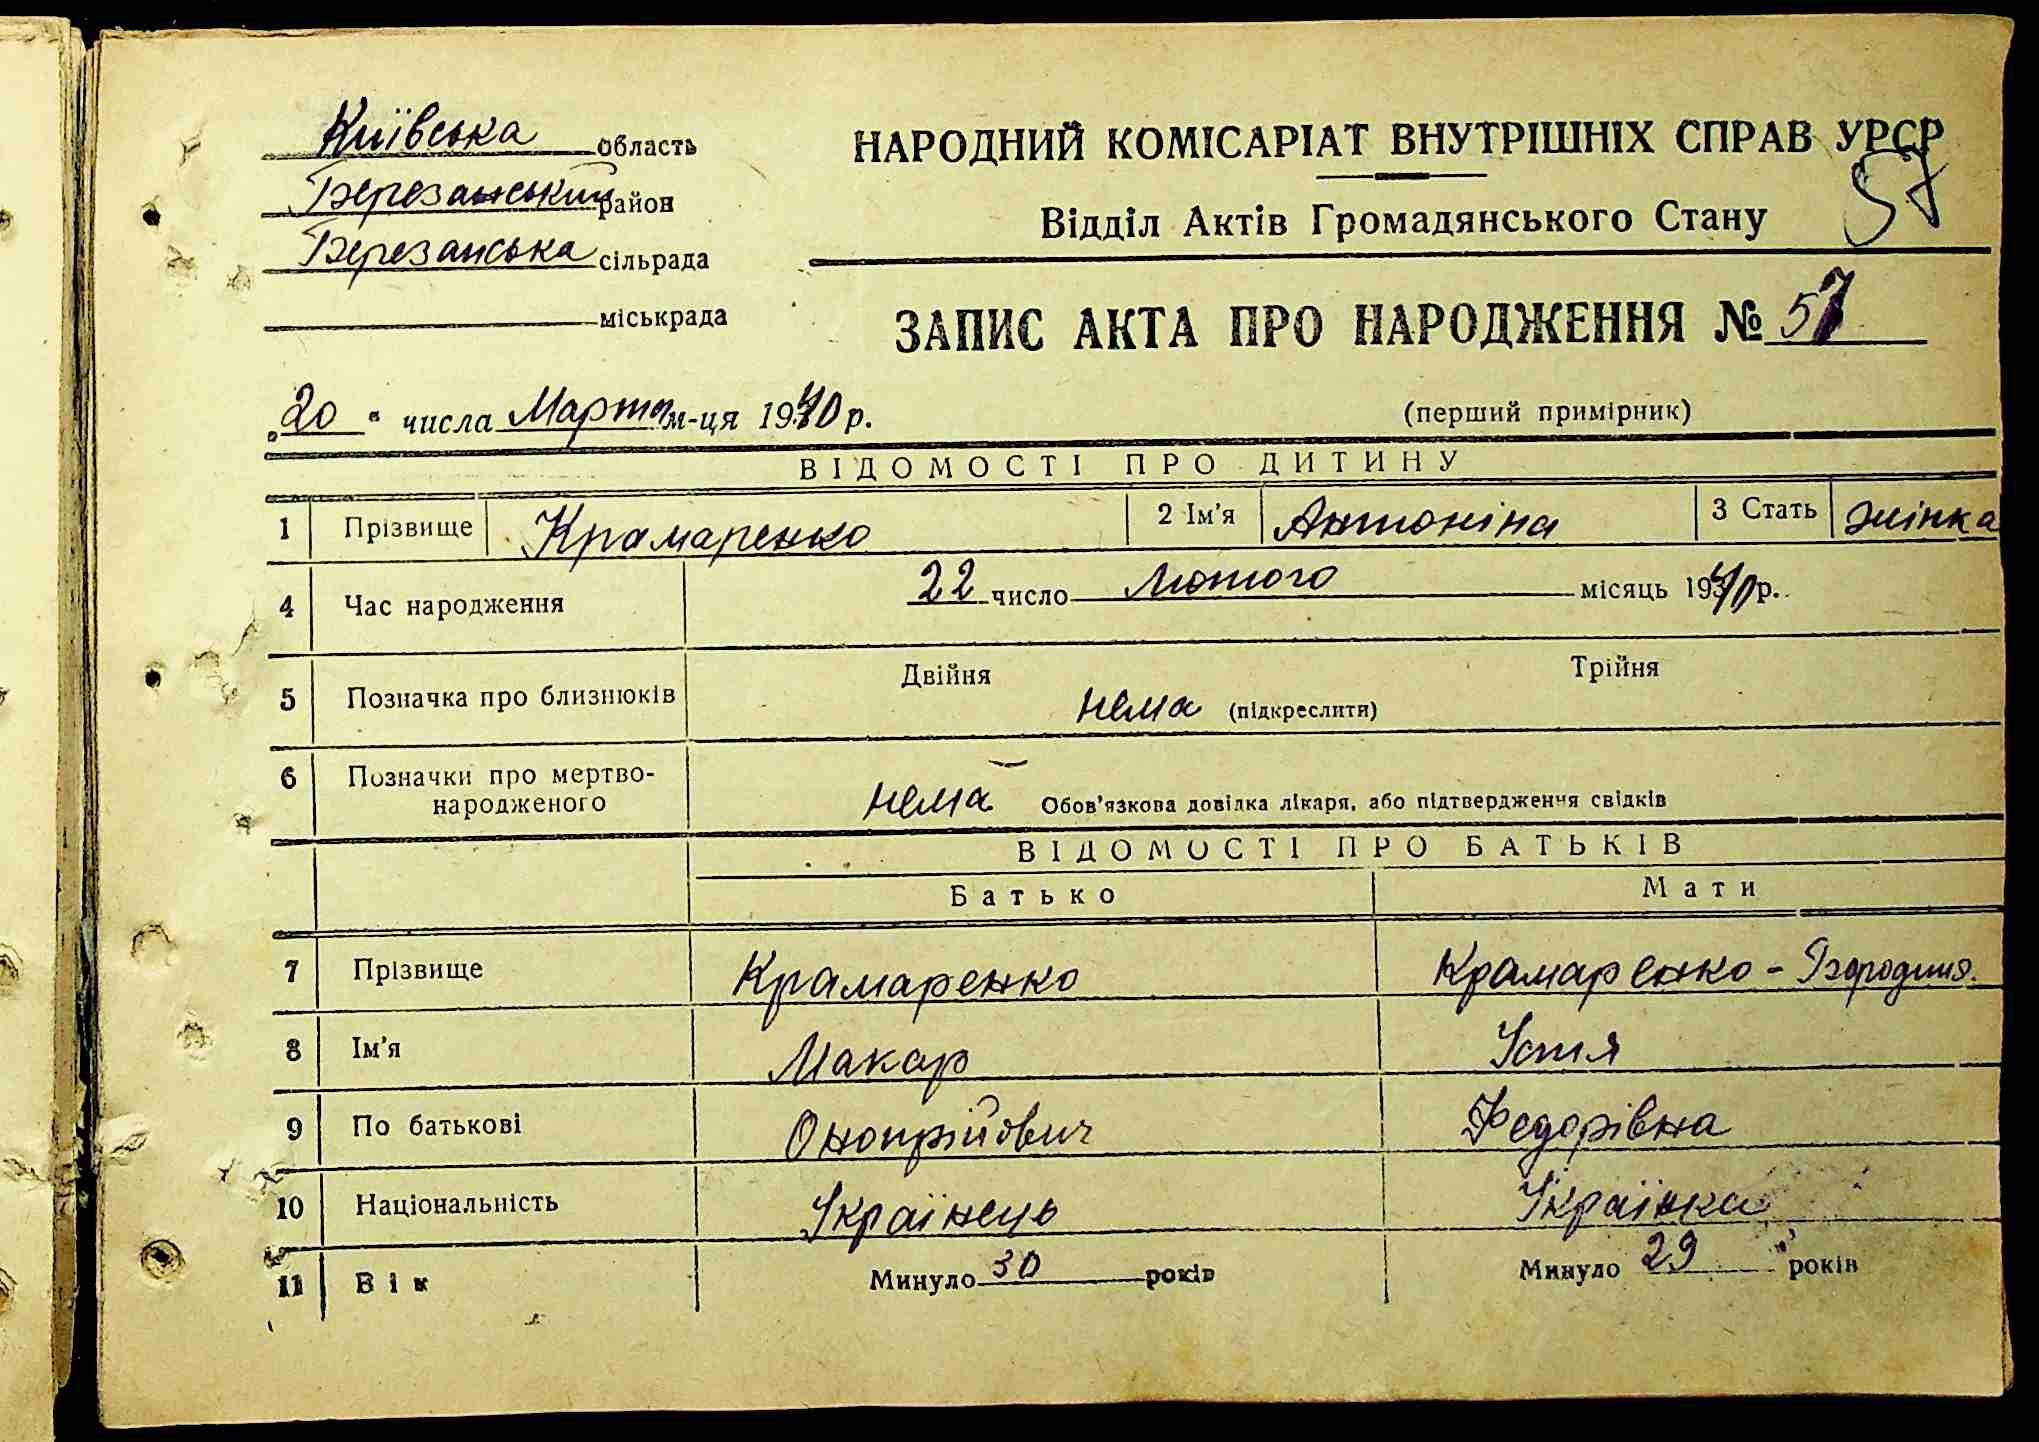 Київська область
Березанський район
Березанська сільрада
міськрада
НАРОДНИЙ КОМІСАРІАТ ВНУТРІШНІХ СПРАВ УРСР
57
Відділ Актів Громадянського Стану
ЗАПИС АКТА ПРО НАРОДЖЕННЯ № 57
„20" числа Марта м-ця 1940 р.
(перший примірник)
ВІДОМОСТІ ПРО ДИТИНУ
1 Прізвище Крамаренко 2 Ім'я Антоніна 3 Стать жінка
4 Час народження 22 число Лютого місяць 1940 р.
5 Позначка про близнюків Двійня Трійня
нема (підкреслити)
6 Позначки про мертво-
народженого нема Обов'язкова довідка лікаря, або підтвердження свідків
ВІДОМОСТІ ПРО БАТЬКІВ
Батько Мати
7 Прізвище Крамаренко Крамаренко -
8 Ім'я Макар Устя
9 По батькові Онопрійович Федорівна
10 Національність Українець Українка
11 Вік Минуло 30 років Минуло 29 років